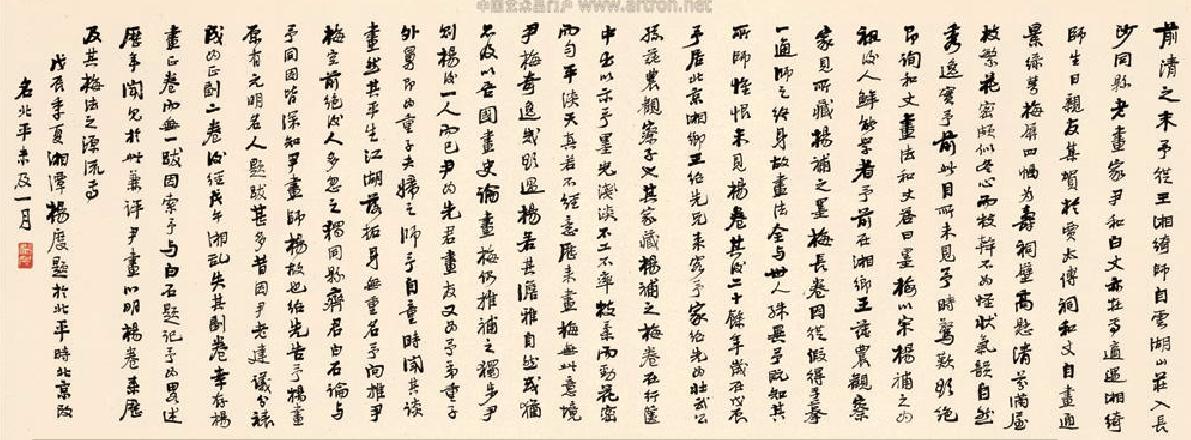 中国艺术品门户 www.artron.net
前清之末予從王湘綺師自雲湖山莊入長
沙同縣老畫家尹和白丈亦在焉適遇湘綺
師生日親友集賀於賈太傅祠和丈自畫通
景綠萼梅屏四幅為壽祠壁高懸清芬滿屋
枝繁花密頗似冬心而枝幹不為怪狀氣韻自然
秀逸實予前此目所未見予時驚歎欲絕
即詢和丈畫法和丈答曰墨梅以宋楊補之為
祖後人鮮能學者予前在湘鄉王茲農觀察
家見所藏楊補之墨梅長卷因從假得手摹
一通師之終身故畫法全與世人殊異予既知其
所師惟恨未見楊卷其後二十餘年歲在戊辰
予居北京湘鄉王紹先兄來客予家紹先為壯武公
孫茲農觀察子也其家藏楊補之梅卷在行篋
中出以示予墨光淺淡不工不率枝柔而勁花密
而勻平淡天真若不經意歷來畫梅無此意境
尹梅奇逸或欲過楊若其澹雅自然或猶
不及以吾國畫史論畫梅仍推補之獨步尹
則楊後一人而已尹為先君畫友又為予弟重子
外舅即為重子夫婦之師予自童時聞其談
畫然其平生江湖落拓身無重名予向推尹
梅空前絕後人多忽之獨同縣齊君白石論與
予同因皆深知尹畫師楊故也紹先告予楊畫
原有元明名人題跋甚多昔因尹老建議分裱
成為正副二卷後經戊午湘亂失其副卷幸存楊
畫正卷而無一跋因索予與白石題記予為略述
歷年聞見於此兼評尹畫以明楊卷來歷
及其梅法之源流焉
戊辰季夏湘潭楊度題於北平時北京改
名北平未及一月